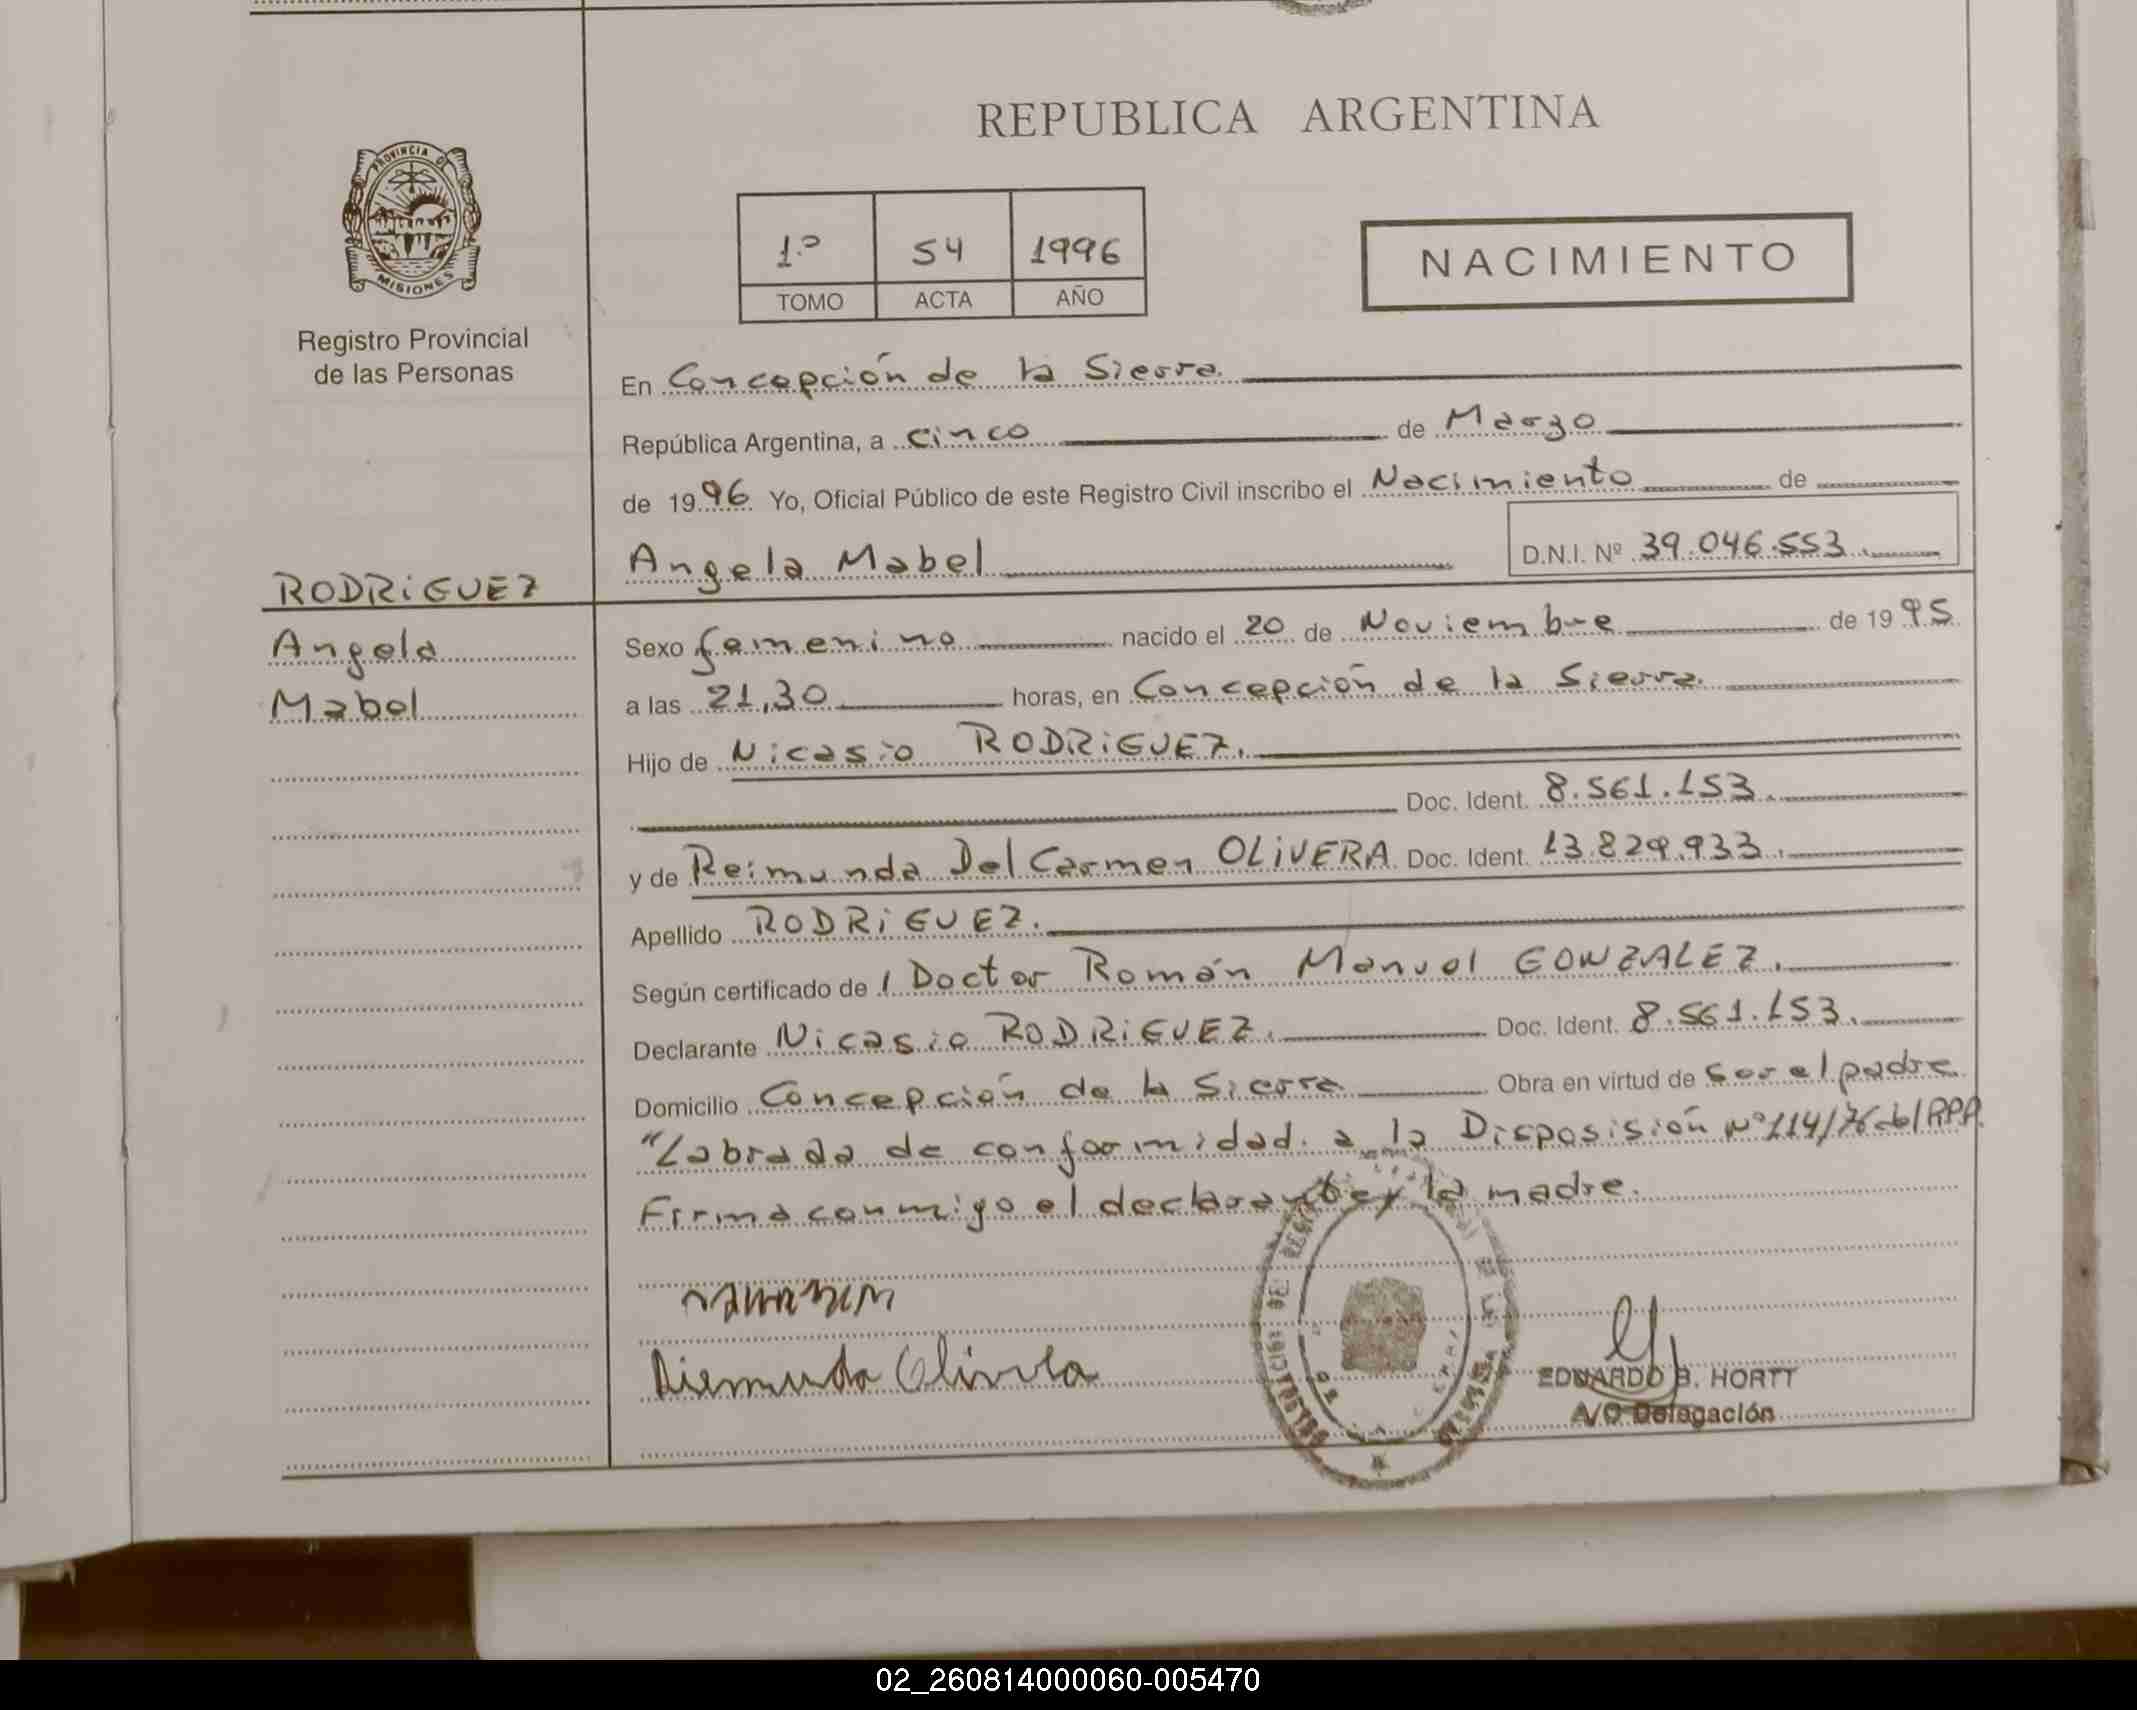 REPUBLICA ARGENTINA
PROVINCIA DE
MISIONES
Registro Provincial
de las Personas
1.º 54 1996
TOMO ACTA AÑO
NACIMIENTO
En Concepción de la Sierra.
República Argentina, a cinco de Marzo
de 1996 Yo, Oficial Público de este Registro Civil inscribo el Nacimiento de
Angela Mabel D.N.I. Nº 39.046.553.
RODRiGUEZ
Angela
Mabel
Sexo femenino nacido el 20 de Noviembre de 1995
a las 21,30 horas, en Concepción de la Sierra.
Hijo de Nicasio RODRiGUEZ.
Doc. Ident. 8.561.153.
y de Reimunda Del Carmen OLiVERA. Doc. Ident. 13.829.933.
Apellido RODRiGUEZ.
Según certificado de l Doctor Román Manuel GONZALEZ.
Declarante Nicasio RODRiGUEZ. Doc. Ident. 8.561.153.
Domicilio Concepción de la Sierra Obra en virtud de ser el padre
"Labrada de conformidad a la Disposisión Nº 114/76
Firma conmigo el declarante y la madre.
Olivera
EDUARDO B. HORTT
A/C Delegación
02_260814000060-005470